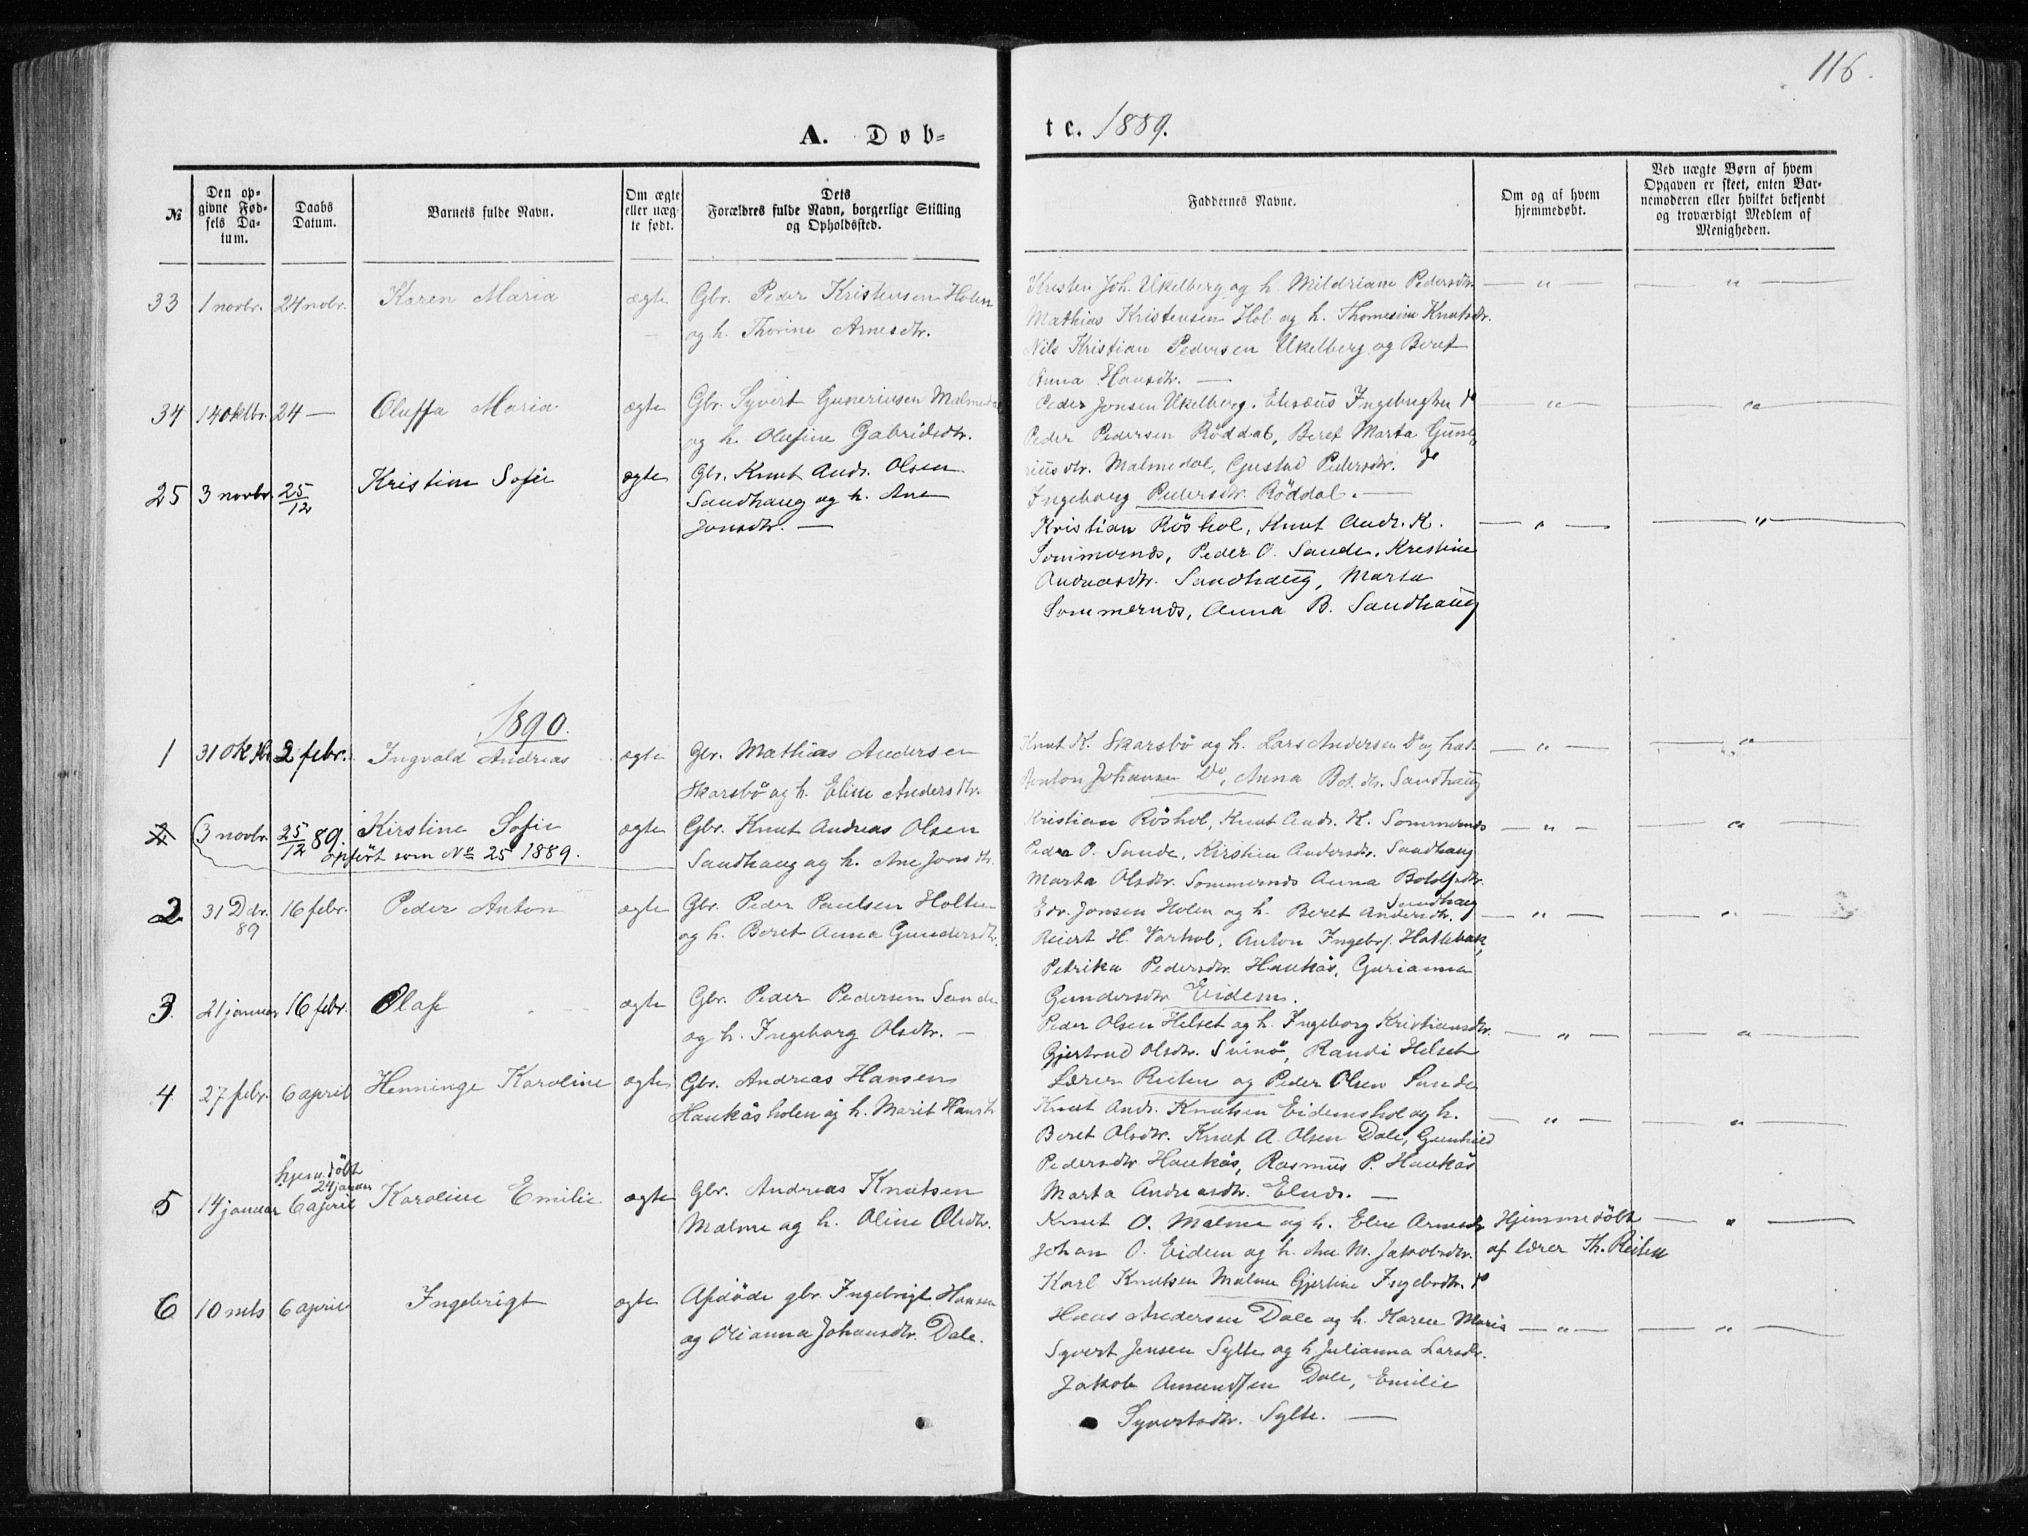 116.
A. Døb-
te. 1889.
№
Den op-
givne Fød-
sels Da-
tum.
Daabs
Datum.
Barnets fulde Navn.
Om ægte
eller uæg-
te født.
Dets
Forældres fulde Navn, borgerlige Stilling
og Opholdssted.
Faddernes Navne.
Om og af hvem
hjemmedøbt.
Ved uægte Børn af hvem
Opgaven er skeet, enten Bar-
nemoderen eller hvilket bekjendt
og troværdigt Medlem af
Menigheden.
33 1 novbr. 24 novbr. Karen Maria ægte
Gbr. Peder Kristensen Holen
og h. Thorine Arnesdtr.
Kristen Joh. Ukelberg og h. Mildriane Pedersdtr. — " — — " —
Mathias Kristensen Hol og h. Thomesine Knutsdtr.
Nils Kristian Pedersen Ukelberg og Beret
Anna Hansdtr. —
34 14 oktbr. 24 — Oluffa Maria ægte
Gbr. Syvert Guneriusen Malmedal
og h. Olufine Gabrielsdtr.
Peder Jonsen Ukelberg. Elisæus Ingebrigtsen do — " — — " —
Peder Pedersen Røddal, Beret Marta Gune-
riusdtr. Malmedal, Gustad Pedersdtr. do
Ingeborg Pedersdtr. Røddal. —
25 3 novbr. 25/12 Kristine Sofie ægte
Gbr. Knut Andr. Olsen
Sandhaug og h. Ane
Jonsdtr. —
Kristian Røshol, Knut Andr. K. — " — — " —
Sommernes, Peder O. Sande, Kristine
Andreasdtr. Sandhaug, Marta
Sommernes, Anna B. Sandhaug
1890.
1 31 oktbr. 2 febr. Ingvald Andreas ægte
Gbr. Mathias Andersen
Skarsbø og h. Eline Andersdtr.
Knut K. Skarsbø og h. Lars Andersen do og h. — " — — " —
Anton Johansen do, Anna Bot. dtr. Sandhaug
2 3 novbr. 25/12 89. Kirstine Sofie ægte
opført som No 25 1889.
Gbr. Knut Andreas Olsen
Sandhaug og h. Ane Jonsdtr.
Kristian Røshol, Knut Andr. K. Sommernes — " — — " —
Peder O. Sande, Kirstine Andersdtr. Sandhaug
Marta Olsdtr. Sommernes Anna Botolfsdtr.
Sandhaug
2 31 Dcbr. 89 16 febr. Peder Anton ægte
Gbr. Peder Paulsen Holten
og h. Beret Anna Gundersdtr.
Edv. Jonsen Holen og h. Beret Andersdtr. — " — — " —
Reiert H. Varhol, Anton Ingebr. Hattebak,
Petrika Pedersdtr. Haukås, Gurianna
Gundersdtr Eidem.
3. 21 januar 16 febr. Olaf ægte
Gbr. Peder Pedersen Sande
og h. Ingeborg Olsdtr. —
Peder Olsen Helset og h. Ingeborg Kristiansdtr. — " — — " —
Gjertrud Olsdtr. Svinø, Randi Helset
Lærer Reiten og Peder Olsen Sande
4 27 febr. 6 april Henninge Karoline ægte
Gbr. Andreas Hansen
Haukåsholen og h. Marit Hansdtr
Knut Andr. Knutsen Eidemshol og h. — " — — " —
Beret Olsdtr. Knut A. Olsen Dale, Gunhild
Pedersdtr Haukås, Rasmus P. Haukås
Marta Andreasdtr. Elnes. —
5 14 januar hjem.døbt 24 januar 6 april Karoline Emilie ægte
Gbr. Andreas Knutsen
Malme og h. Oline Olsdtr.
Knut O. Malme og h. Elen Arnesdtr Hjemmedøbt — " —
Johan O. Eidem og h. Ane M. Jakobsdtr. af lærer Th. Reiten
Karl Knutsen Malme Gjertine Ingebrdtr. do
6 10 mts 6 april Ingebrigt ægte
Afdøde gbr. Ingebrigt Hansen
og Olianna Johansdtr. Dale.
Hans Andersen Dale og h. Karen Maria — " — — " —
Syvert Jensen Sylte og h. Julianna Larsdtr.
Jakob Amundsen Dale, Emilie
Syvertsdtr. Sylte. —